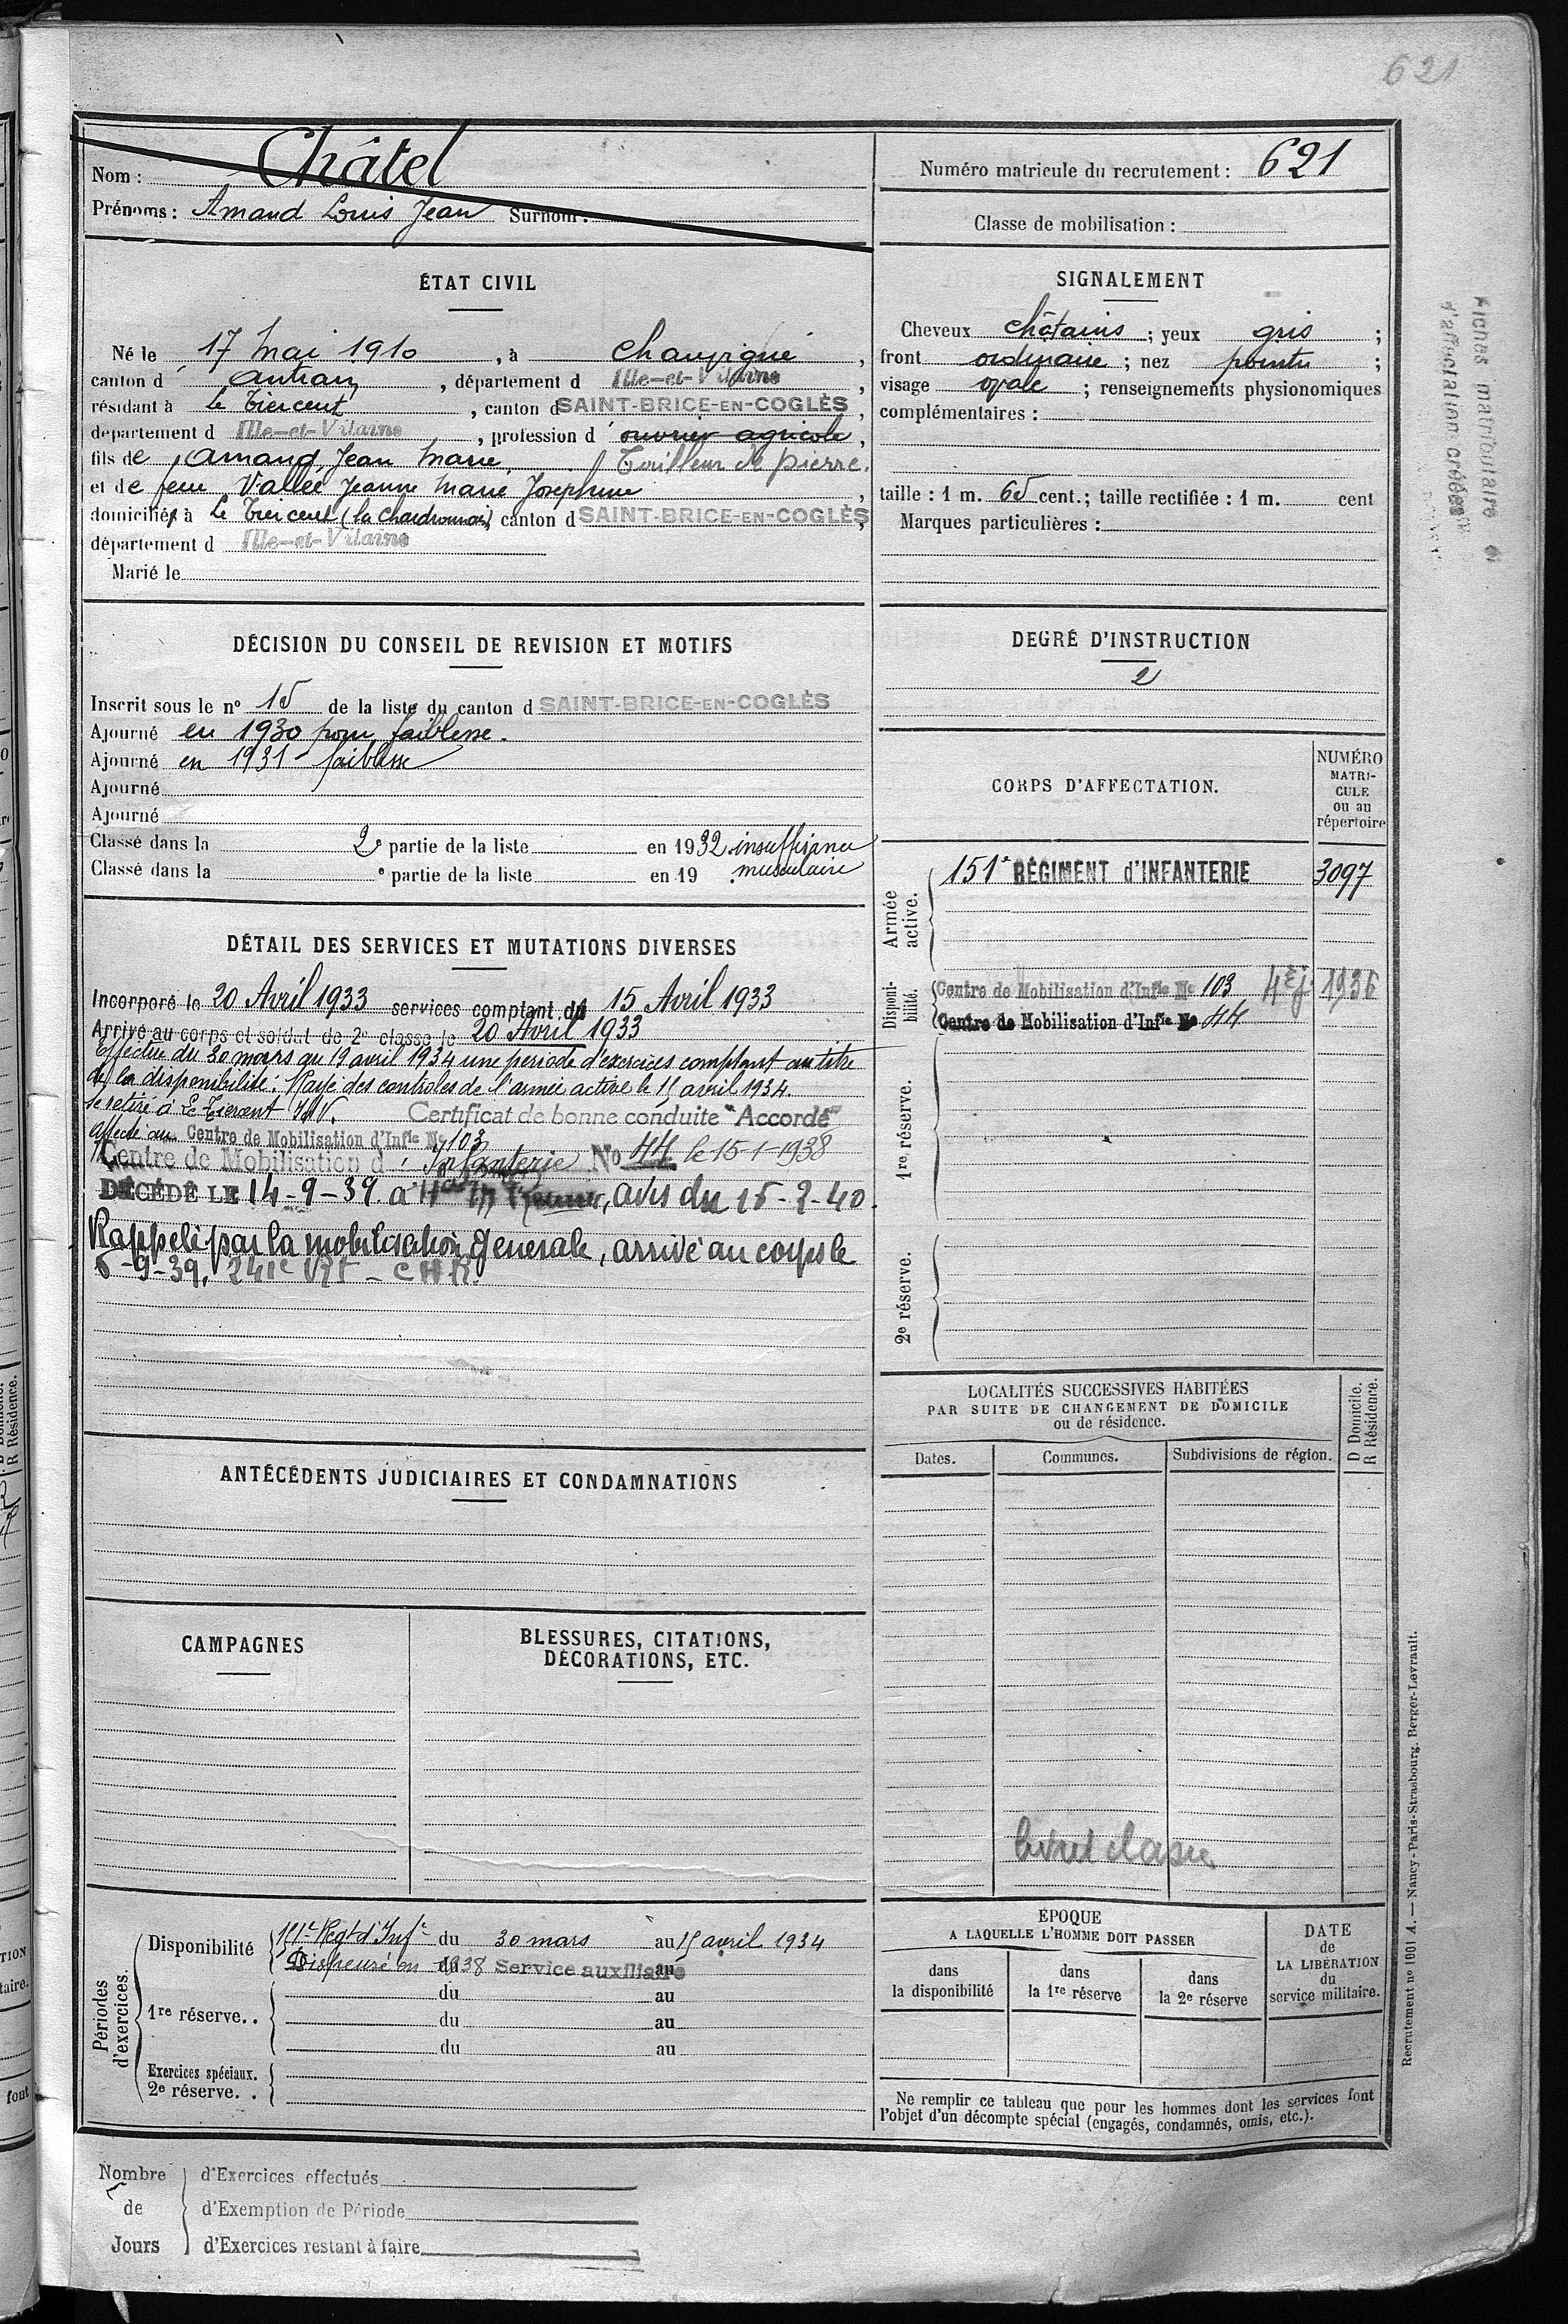 621
Nom : Châtel
Prénoms : Amand Louis Jean Surnom :
Numéro matricule du recrutement : 621
Classe de mobilisation :
ÉTAT CIVIL
Né le 17 Mai 1910, à Chauvigné,
canton d Antrain, département d Ille-et-Vilaine,
résidant à Le Tiercent, canton d SAINT-BRICE-EN-COGLÈS,
département d Ille-et-Vilaine, profession d' ouvrier agricole,
fils de Amand, Jean Marie, Tailleur de pierre.
et de feue Vallée Jeanne Marie Josephine,
domiciliés à Le Tiercent (la Chardronnais) canton d SAINT-BRICE-EN-COGLÈS,
département d Ille-et-Vilaine
Marié le
SIGNALEMENT
Cheveux châtains ; yeux gris ;
front ordinaire ; nez pointu ;
visage ovale ; renseignements physionomiques
complémentaires :
taille : 1 m. 65 cent. ; taille rectifiée : 1 m. cent
Marques particulières :
Fiches matriculaire et
d'affectation créées
DÉCISION DU CONSEIL DE REVISION ET MOTIFS
Inscrit sous le nº 15 de la liste du canton d SAINT-BRICE-EN-COGLÈS
Ajourné en 1930 pour faiblesse.
Ajourné en 1931 - faiblesse
Ajourné
Ajourné
Classé dans la 2e partie de la liste en 1932 insuffisance
Classé dans la e partie de la liste en 19 musculaire
DEGRÉ D'INSTRUCTION
2
CORPS D'AFFECTATION.
NUMÉRO
MATRI-
CULE
ou au
répertoire
Armée
active.
151e RÉGIMENT d'INFANTERIE 3097
Disponi-
bilité.
Centre de Mobilisation d'Infie No 103 1936
Centre de Mobilisation d'Infie No 44
1re réserve.
2e réserve.
DÉTAIL DES SERVICES ET MUTATIONS DIVERSES
Incorporé le 20 Avril 1933 services comptant du 15 Avril 1933
Arrivé au corps et soldat de 2e classe le 20 Avril 1933
Effectue du 30 mars au 19 avril 1934 une periode d'exercices comptant au titre
de la disponibilité. Rayé des controles de l'armée active le 15 avril 1934.
se retire à Le Tiercent I&V. Certificat de bonne conduite "Accordé"
Affecté au Centre de Mobilisation d'Infie No 103
Centre de Mobilisation d' Infanterie No 44 le 15-1-1938
DÉCÉDÉ LE 14-9-39. à , avis du 15-2-40.
Rappelé par la mobilisation générale, arrivé au corps le
6-9-39. 241e - CHR.
ANTÉCÉDENTS JUDICIAIRES ET CONDAMNATIONS
CAMPAGNES
BLESSURES, CITATIONS,
DÉCORATIONS, ETC.
LOCALITÉS SUCCESSIVES HABITÉES
PAR SUITE DE CHANGEMENT DE DOMICILE
ou de résidence.
D Domicile.
R Résidence.
Dates. Communes. Subdivisions de région.
livret classé
Périodes
d'exercices.
Disponibilité 151e Regt d'Infie du 30 mars au 15 avril 1934
Dispensé en 1938 Service auxiliaire au
du au
1re réserve.. du au
du au
Exercices spéciaux.
2e réserve. .
ÉPOQUE
A LAQUELLE L'HOMME DOIT PASSER
dans
la disponibilité
dans
la 1re réserve
dans
la 2e réserve
DATE
de
LA LIBÉRATION
du
service militaire.
Ne remplir ce tableau que pour les hommes dont les services font
l'objet d'un décompte spécial (engagés, condamnés, omis, etc.).
Recrutement nº 1001 A. — Nancy-Paris-Strasbourg, Berger-Levrault.
Nombre
de
Jours
d'Exercices effectués
d'Exemption de Période
d'Exercices restant à faire
R Résidence.
font